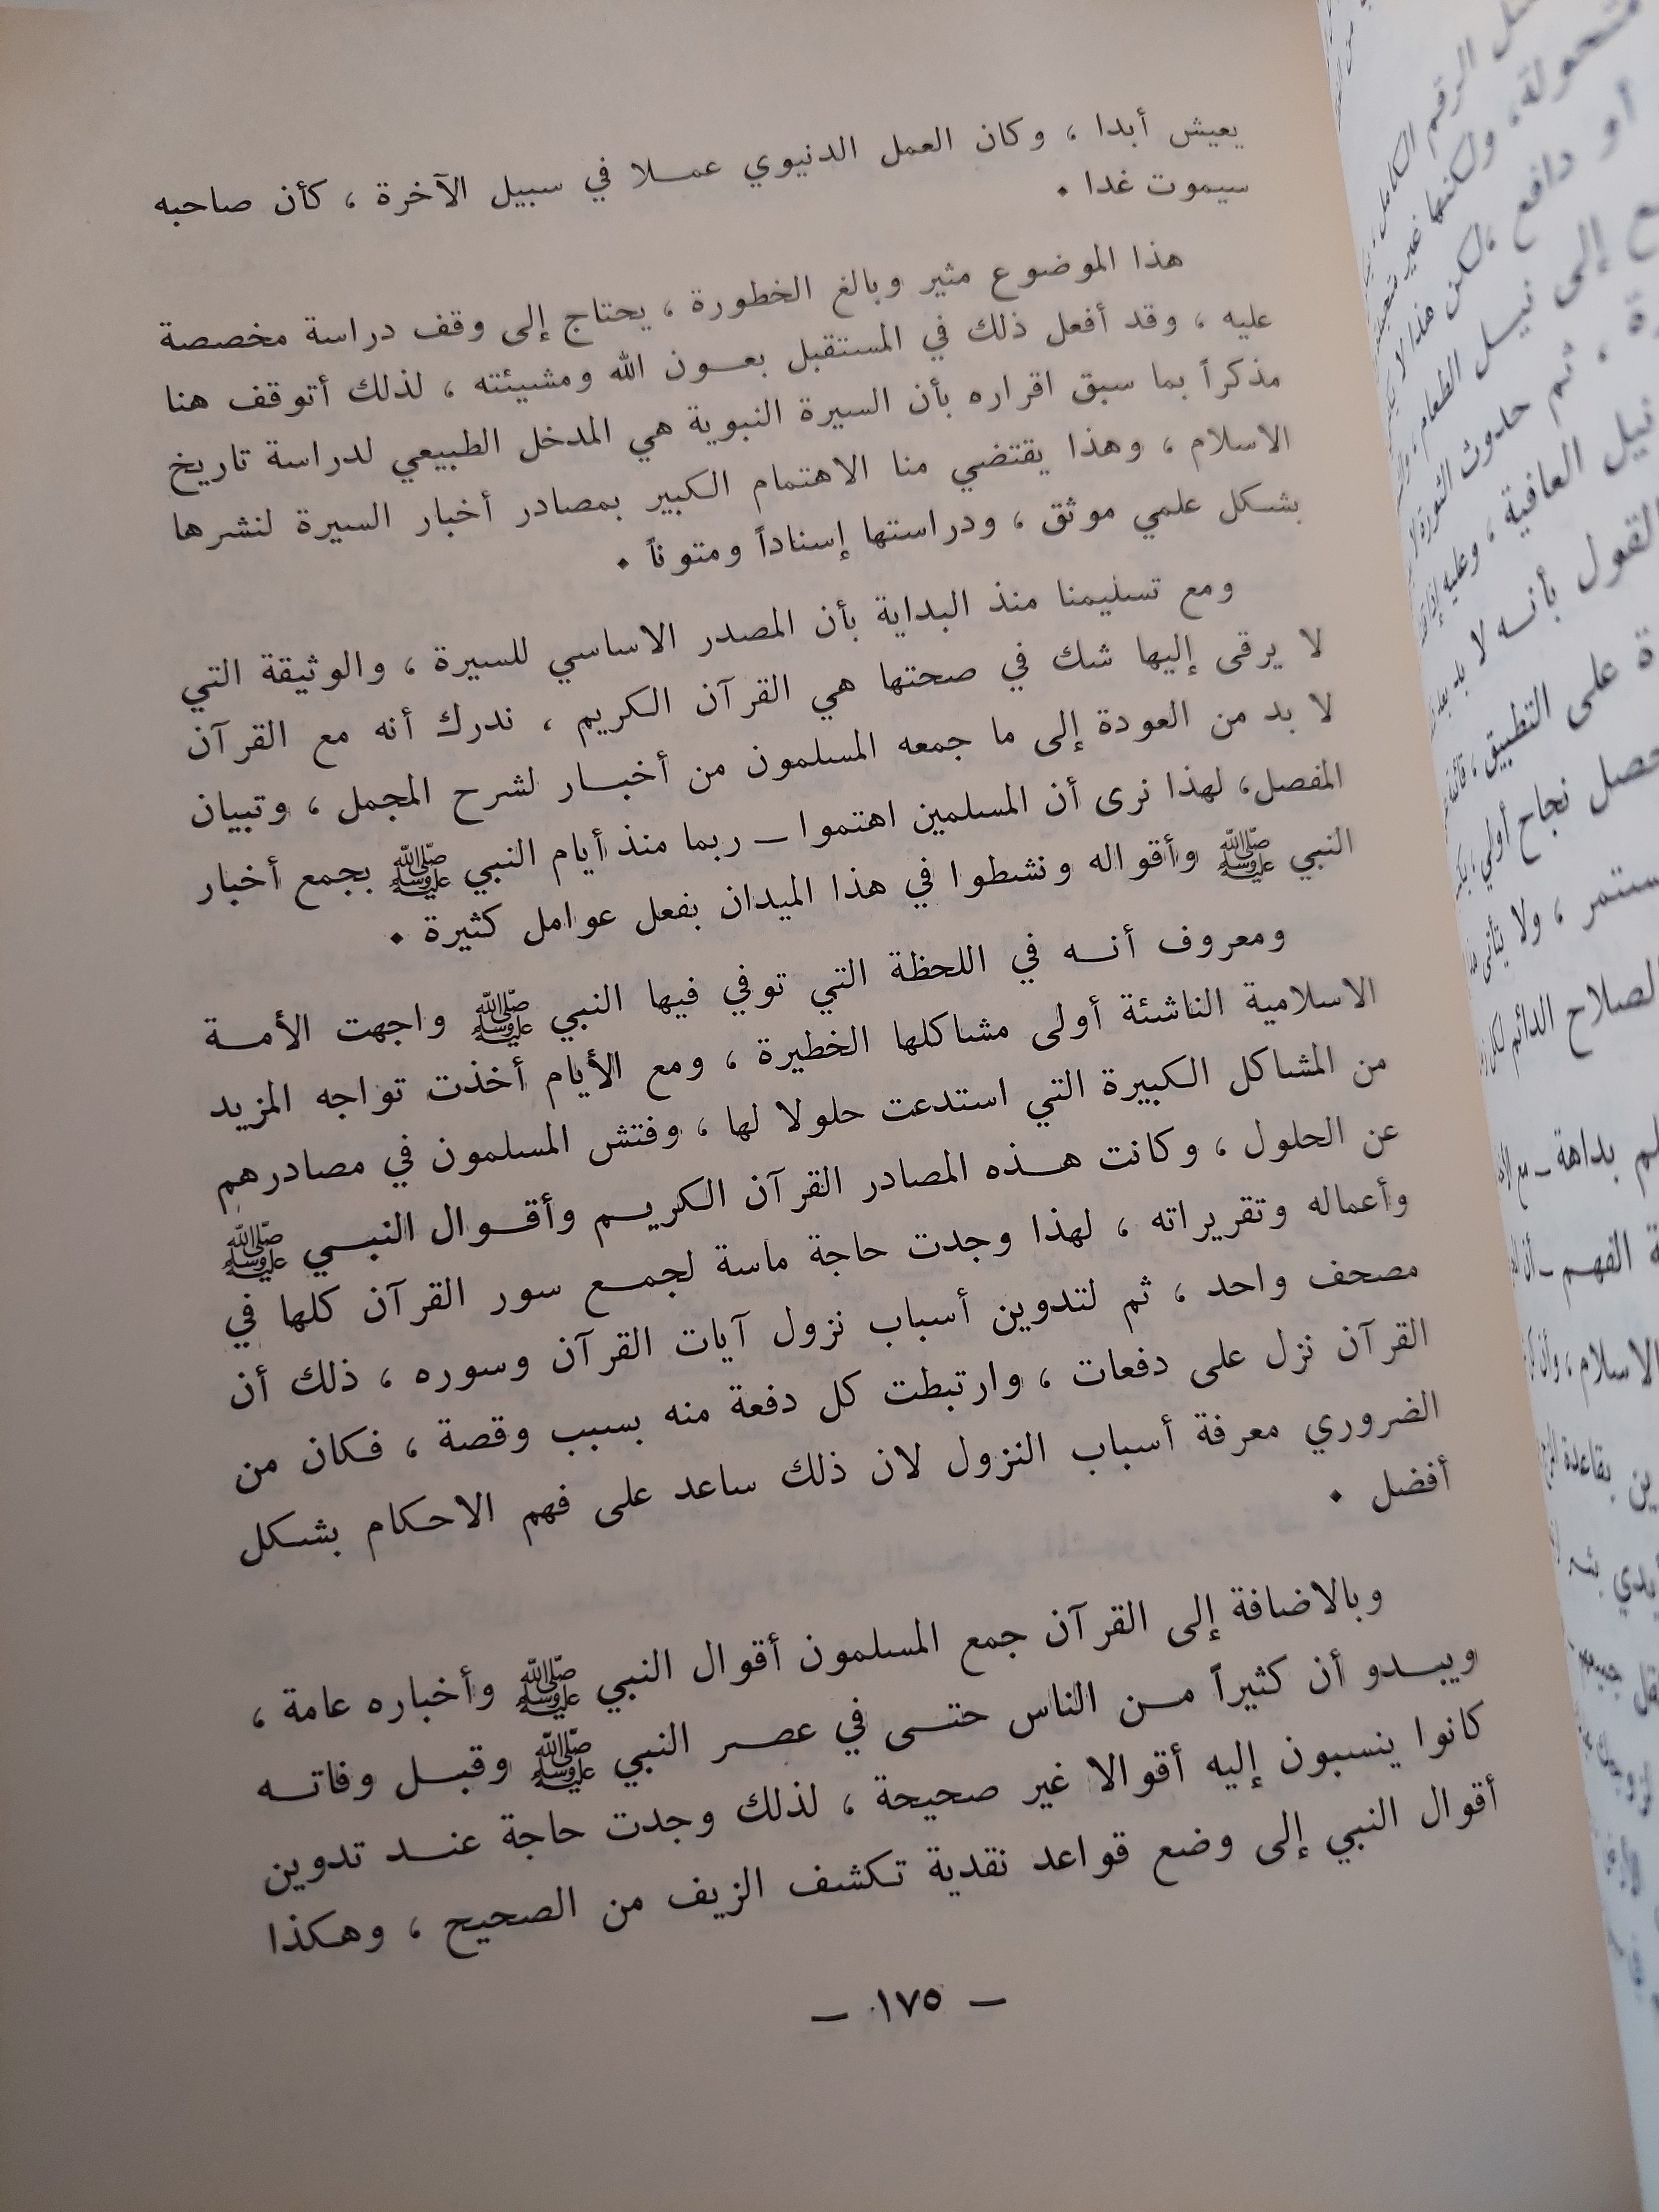 يعيش أبدا ، وكان العمل الدنيوي عملا في سبيل الآخرة ، كأن صاحبه
سيموت غدا .
هذا الموضوع مثير وبالغ الخطورة ، يحتاج إلى وقف دراسة مخصصة
عليه ، وقد أفعل ذلك في المستقبل بعون الله ومشيئته ، لذلك أتوقف هنا
مذكراً بما سبق اقراره بأن السيرة النبوية هي المدخل الطبيعي لدراسة تاريخ
الاسلام ، وهذا يقتضي منا الاهتمام الكبير بمصادر أخبار السيرة لنشرها
بشكل علمي موثق ، ودراستها إسناداً ومتوناً .
ومع تسليمنا منذ البداية بأن المصدر الاساسي للسيرة ، والوثيقة التي
لا يرقى إليها شك في صحتها هي القرآن الكريم ، ندرك أنه مع القرآن
لا بد من العودة إلى ما جمعه المسلمون من أخبار لشرح المجمل ، وتبيان
المفصل، لهذا نرى أن المسلمين اهتموا ـ ربما منذ أيام النبي ﷺ بجمع أخبار
النبي ﷺ وأقواله ونشطوا في هذا الميدان بفعل عوامل كثيرة .
ومعروف أنه في اللحظة التي توفي فيها النبي ﷺ واجهت الأمة
الاسلامية الناشئة أولى مشاكلها الخطيرة ، ومع الأيام أخذت تواجه المزيد
من المشاكل الكبيرة التي استدعت حلولا لها ، وفتش المسلمون في مصادرهم
عن الحلول ، وكانت هذه المصادر القرآن الكريم وأقوال النبي ﷺ
وأعماله وتقريراته ، لهذا وجدت حاجة ماسة لجمع سور القرآن كلها في
مصحف واحد ، ثم لتدوين أسباب نزول آيات القرآن وسوره ، ذلك أن
القرآن نزل على دفعات ، وارتبطت كل دفعة منه بسبب وقصة ، فكان من
الضروري معرفة أسباب النزول لان ذلك ساعد على فهم الاحكام بشكل
أفضل .
وبالاضافة إلى القرآن جمع المسلمون أقوال النبي ﷺ وأخباره عامة ،
ويبدو أن كثيراً من الناس حتى في عصر النبي ﷺ وقبل وفاته
كانوا ينسبون إليه أقوالا غير صحيحة ، لذلك وجدت حاجة عند تدوين
أقوال النبي إلى وضع قواعد نقدية تكشف الزيف من الصحيح ، وهكذا
ـ ١٧٥ ـ